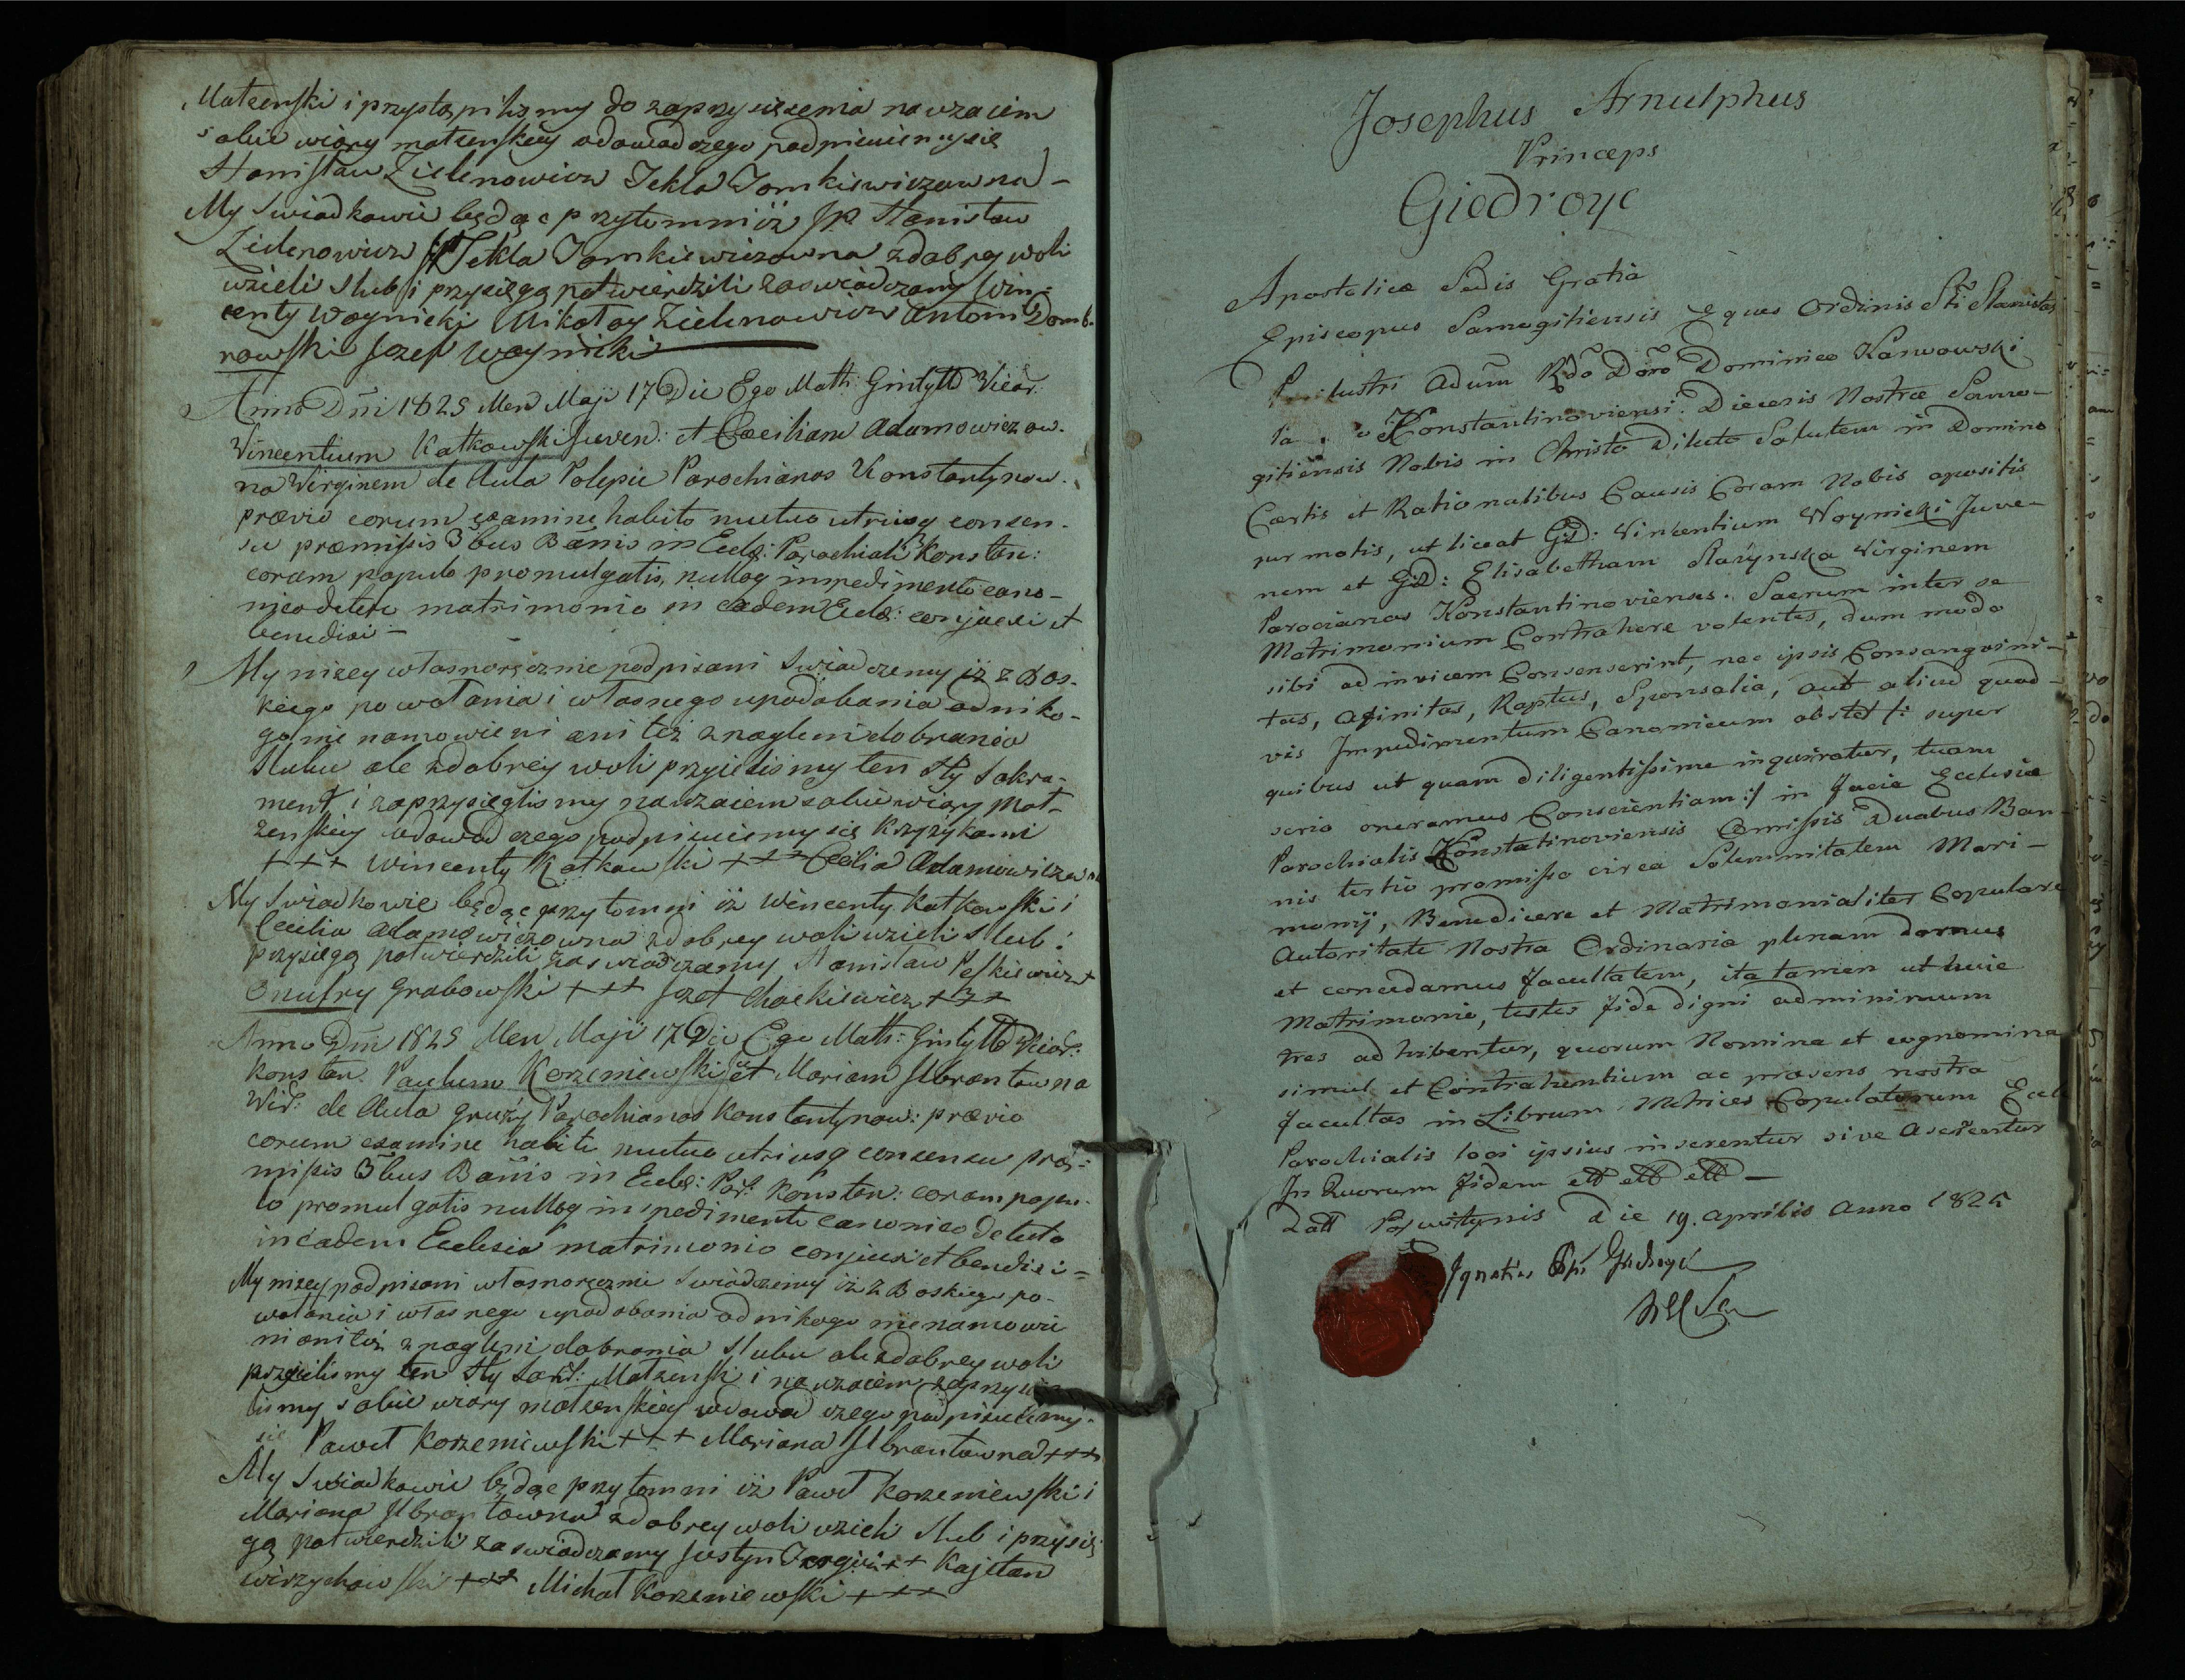 Małżenski i przystąpiliszmy do zaprzysiezenia nawzaiem
sobie wiary małzenskiey odowod czego podpisuiemysię
Stanisław Zielenowicz Tekla Tomkiewiczowna –
My Swiadkowie będąc przytomni iż JP Stanisław
Zielenowicz JP Tekla Tomkiewiczowna z dobrey woli
wzieli Slub i przysięgą potwierdzili zaswiadczamy Win-
centy Woynicki Mikołay Zielenowicz Antoni Domb-
rowski Jozef Woynicki
Anno Dñi 1825 Men Maji 17 Die Ego Math: Gintyłło Vicar:
Vincentium Katkowski Juven: et Caeciliam Adamowiczow-
na Virginem de Aula Polepie Parochianos Konstantynow.
praevio eorum examine habito mutuo utriusq consen-
su praemissis 3bus Banis in Eccla: Parochiali Konstan:
coram populo promulgatis, nulloq impedimento cano-
nico detecto matrimonio in eadem Eccla: conjunxi et
benedixi –
My nizey własnoręcznie podpisani Swiadczemy iż z Bos-
kiego powołania i własnego upodobania od niko-
go nie namowieni ani też znagleni dobrania
Slubu ale z dobrey woli przyielismy ten Sty Sakra-
ment i zaprzysięglismy nawzaiem sobie wiary Mał-
żenskiey odowod czego podpisuiemy się krzyżykami
+++ Wincenty Katkowski +++ Cecilia Adamowiczowna
My Swiadkowie będąc przytomni iż Wincenty Katkowski i
Cecilia Adamowiczowna z dobrey woli wzieli Slub i
przysięgą potwierdzili zaswiadczamy Stanisław Peskiewicz +
Onufry Grabowski +++ Jozef Chackiewicz +++
Anno Dñi 1825 Men Maji 17 Die Ego Math: Gintyłło Vicar:
Konstan. Paulum Korzeniewski et Mariam Jlbrantowna
Vir: de Aula Gruży Parochianos Konstantynow: praevio
eorum examine habito mutuo utriusq consensu prae-
missis 3bus Banis in Eccla: Par: Konstan: coram popu-
lo promulgatis nulloq impedimento canonico detecto
in eadem Ecclesia matrimonio conjunxi et benedixi =
My nizey podpisani własnoręcznie Swiadczemy iż z Boskiego po-
wołania i własnego upodobania od nikogo nie namowie
ni ani też znagleni dobrania Slubu ale z dobrey woli
przyielismy ten Sty Sakr: Małzenski i nawzaiem zaprzysie
lismy sobie wiary małzenskiey wdowod czego podpisuiemy
się Paweł Korzeniewski +++ Mariana Jlbrantowna +++
My Swiadkowie będąc przytomni iż Paweł Korzeniewski i
Mariana Jlbrantowna z dobrey woli wzieli Slub i przysię
gą potwierdzili zaswiadczamy Justyn ++ Kajetan
Wirzychowski +++ Michał Korzeniewski +++
Josephus Arnulphus
Princeps
Giedroyc
Apostolicae Sedis Gratia
Episcopus Samogitiensis Eques Ordinis Sti Stanislai
Perilustri Adum Rdo Dõno Dominico Karwowski
Konstantinoviensi Diecesis Nostrae Samo-
gitiensis Nobis in Christo Dilecto Salutem in Domino
Certis et Rationalibus Causis Coram Nobis apositis
per motis, ut liceat GD: Vincentium Woynicki Juve-
nem et GD: Elisabetham Starynska Virginem
Parocianos Konstantinovienses. Sacrum inter se
Matrimonium Contrahere volentes, dum modo
sibi ad invicem Consenserint, nec ipsis Consangvini-
tas, afinitas, Raptus, Sponsalia, aut aliud quod-
vis Impedimentum Canonicum obstet /: super
quibus ut quam diligentissime inquiratur, tuam
serio oneramus Conscientiam :/ in facie Ecclesiae
Parochialis Konstatinoviensis Omissis Duabus Ban-
nis tertio promisso circa Solemnitatem Mari-
monij, Benedicere et Matrimonialiter Copulare
Autoritate Nostra Ordinaria plenam damus
et concedamus facultatem, ita tamen ut huic
Matrimonio, testes fide digni adminimum
tres ad hibentur, quorum Nomina et cognomina
simul et Contrahentium ac praesens nostra
facultas in Librum Metrices Copulatorum Eccl
Parochialis loci ipsius inserentur sive Ascrientur
In Quorum fidem ett ett ett –
Datt die 19. Aprilis Anno 1825
Ignatius Giedroyć